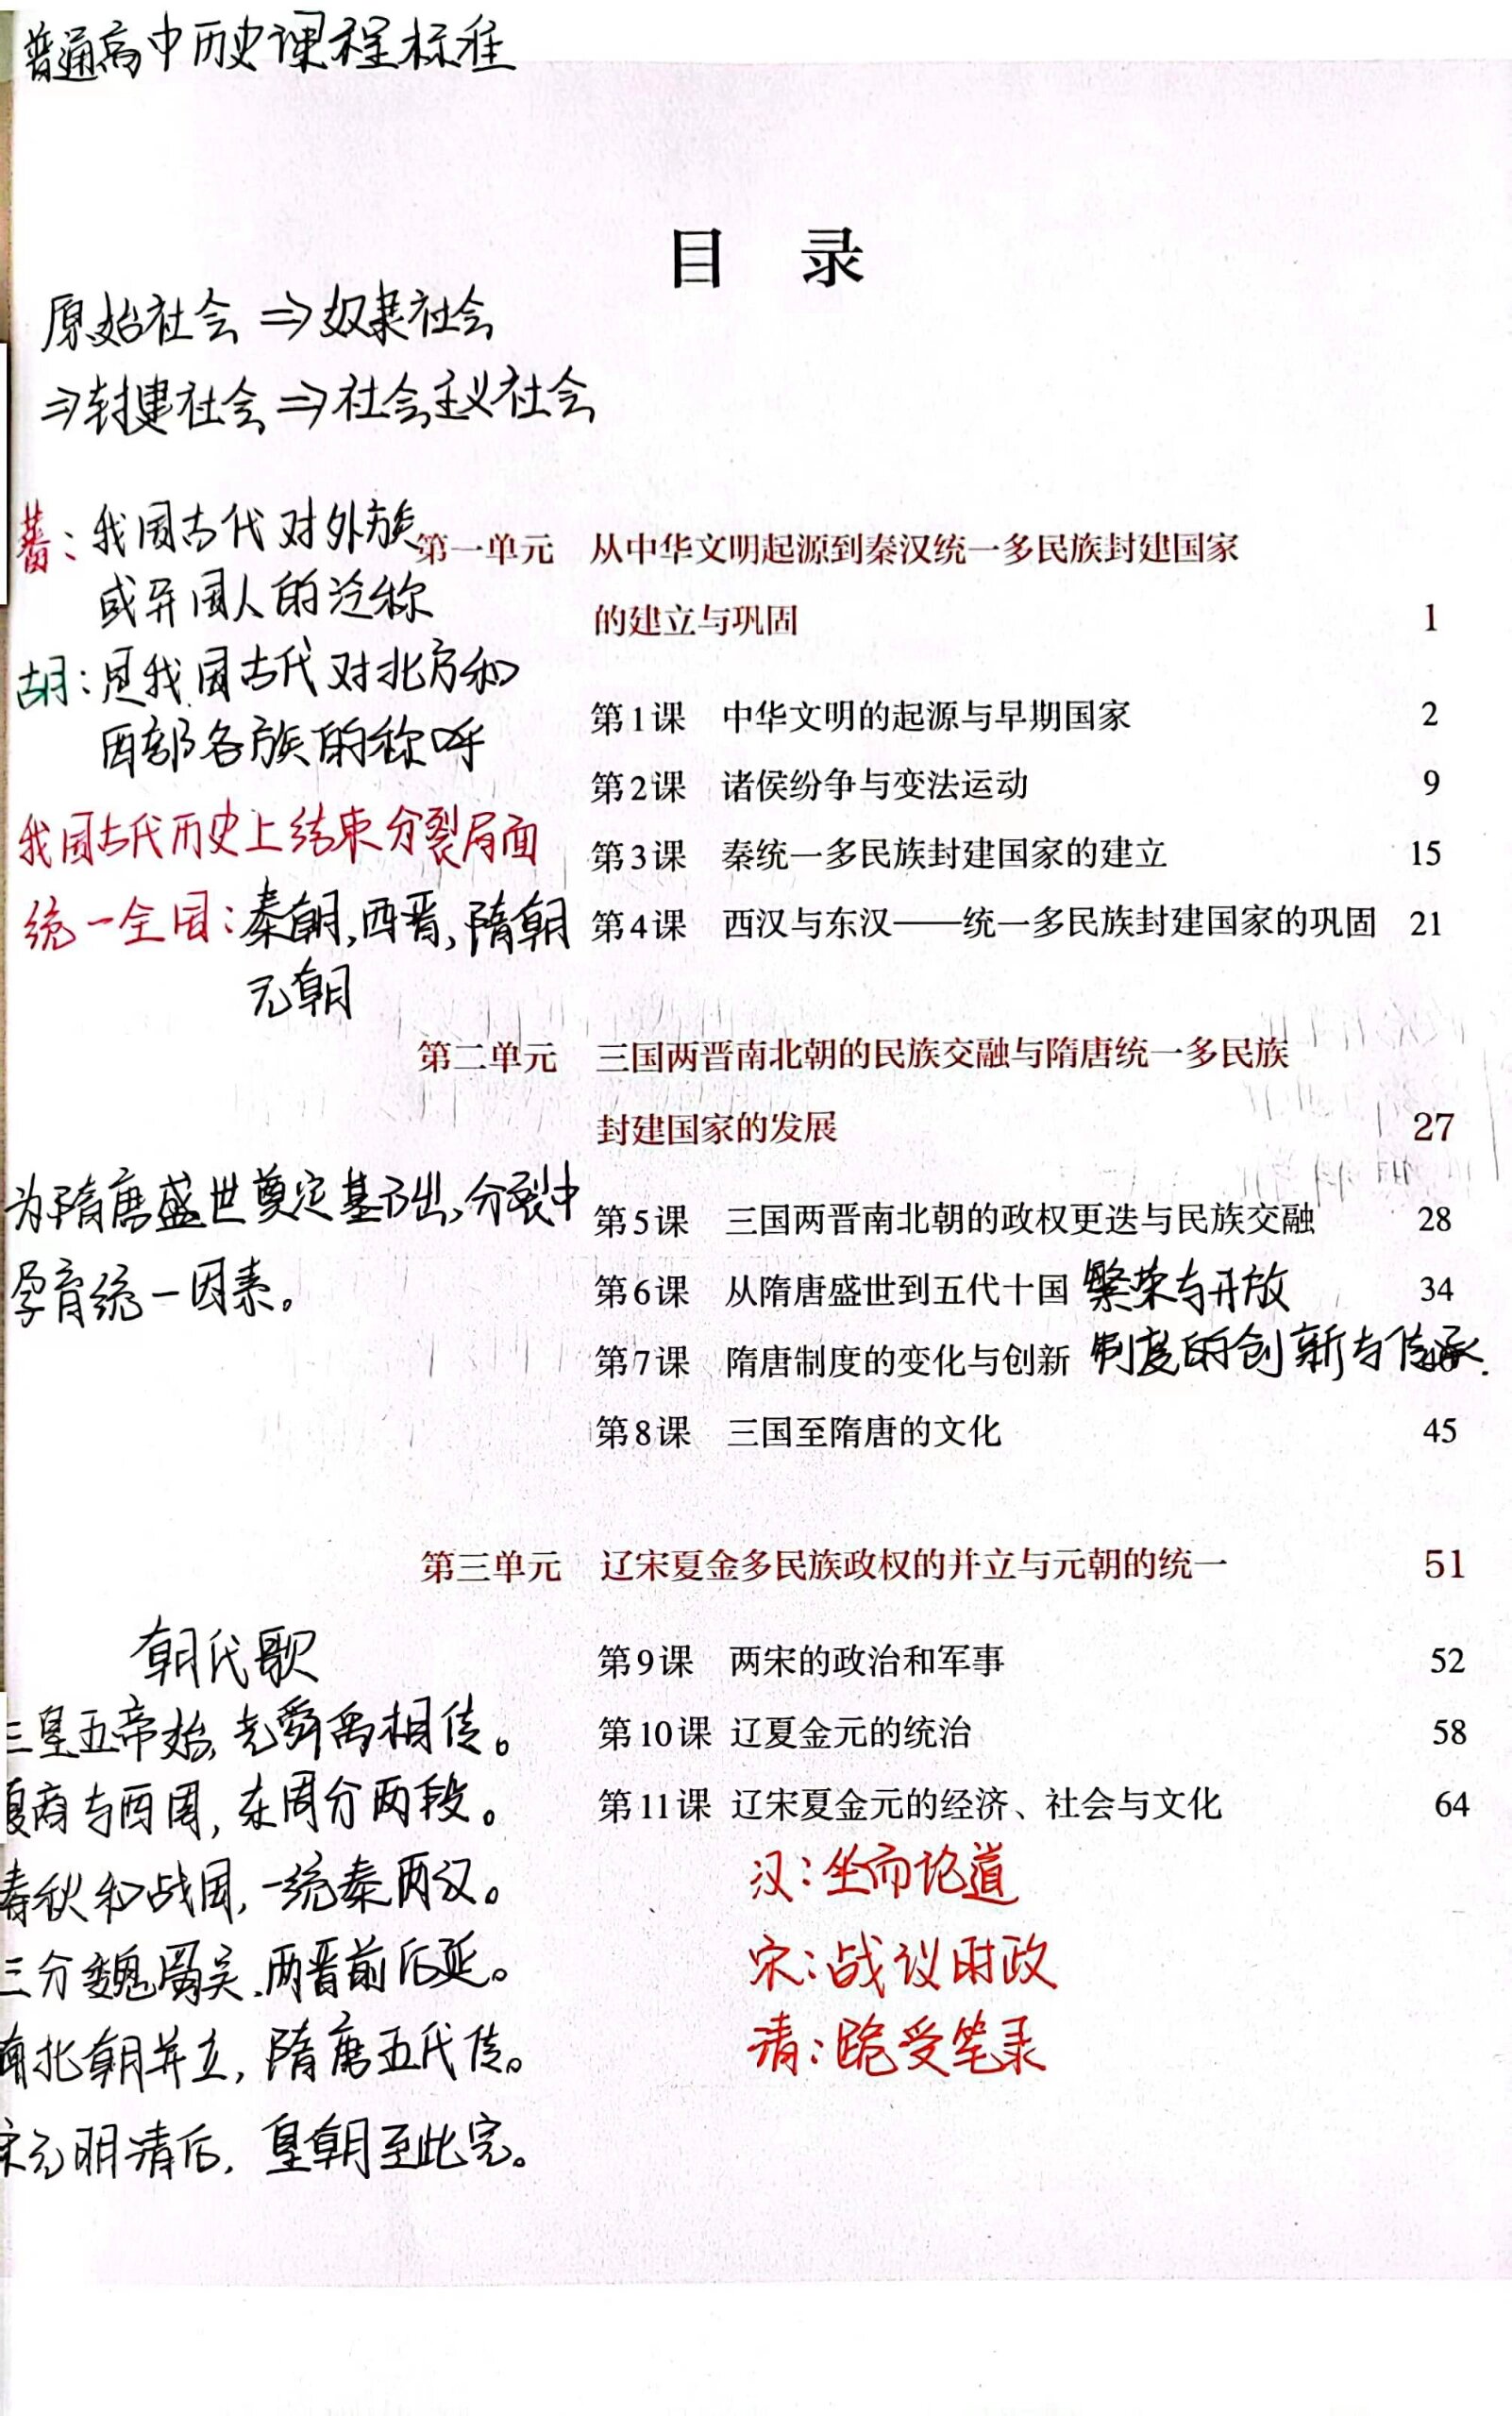 普通高中历史课程标准
目 录
原始社会 ⇒ 奴隶社会
⇒ 封建社会 ⇒ 社会主义社会
蕃：我国古代对外族
或异国人的泛称
胡：是我国古代对北方和
西部各族的称呼
我国古代历史上结束分裂局面
统一全国：秦朝，西晋，隋朝
元朝
第一单元 从中华文明起源到秦汉统一多民族封建国家
的建立与巩固 1
第1课 中华文明的起源与早期国家 2
第2课 诸侯纷争与变法运动 9
第3课 秦统一多民族封建国家的建立 15
第4课 西汉与东汉——统一多民族封建国家的巩固 21
第二单元 三国两晋南北朝的民族交融与隋唐统一多民族
封建国家的发展 27
为隋唐盛世奠定基础，分裂中
孕育统一因素。
第5课 三国两晋南北朝的政权更迭与民族交融 28
第6课 从隋唐盛世到五代十国 繁荣与开放 34
第7课 隋唐制度的变化与创新 制度的创新与传承.
第8课 三国至隋唐的文化 45
第三单元 辽宋夏金多民族政权的并立与元朝的统一 51
第9课 两宋的政治和军事 52
第10课 辽夏金元的统治 58
第11课 辽宋夏金元的经济、社会与文化 64
汉：坐而论道
宋：战议时政
清：跪受笔录
朝代歌
三皇五帝始，尧舜禹相传。
夏商与西周，东周分两段。
春秋和战国，一统秦两汉。
三分魏蜀吴，两晋前后延。
南北朝并立，隋唐五代传。
宋元明清后，皇朝至此完。